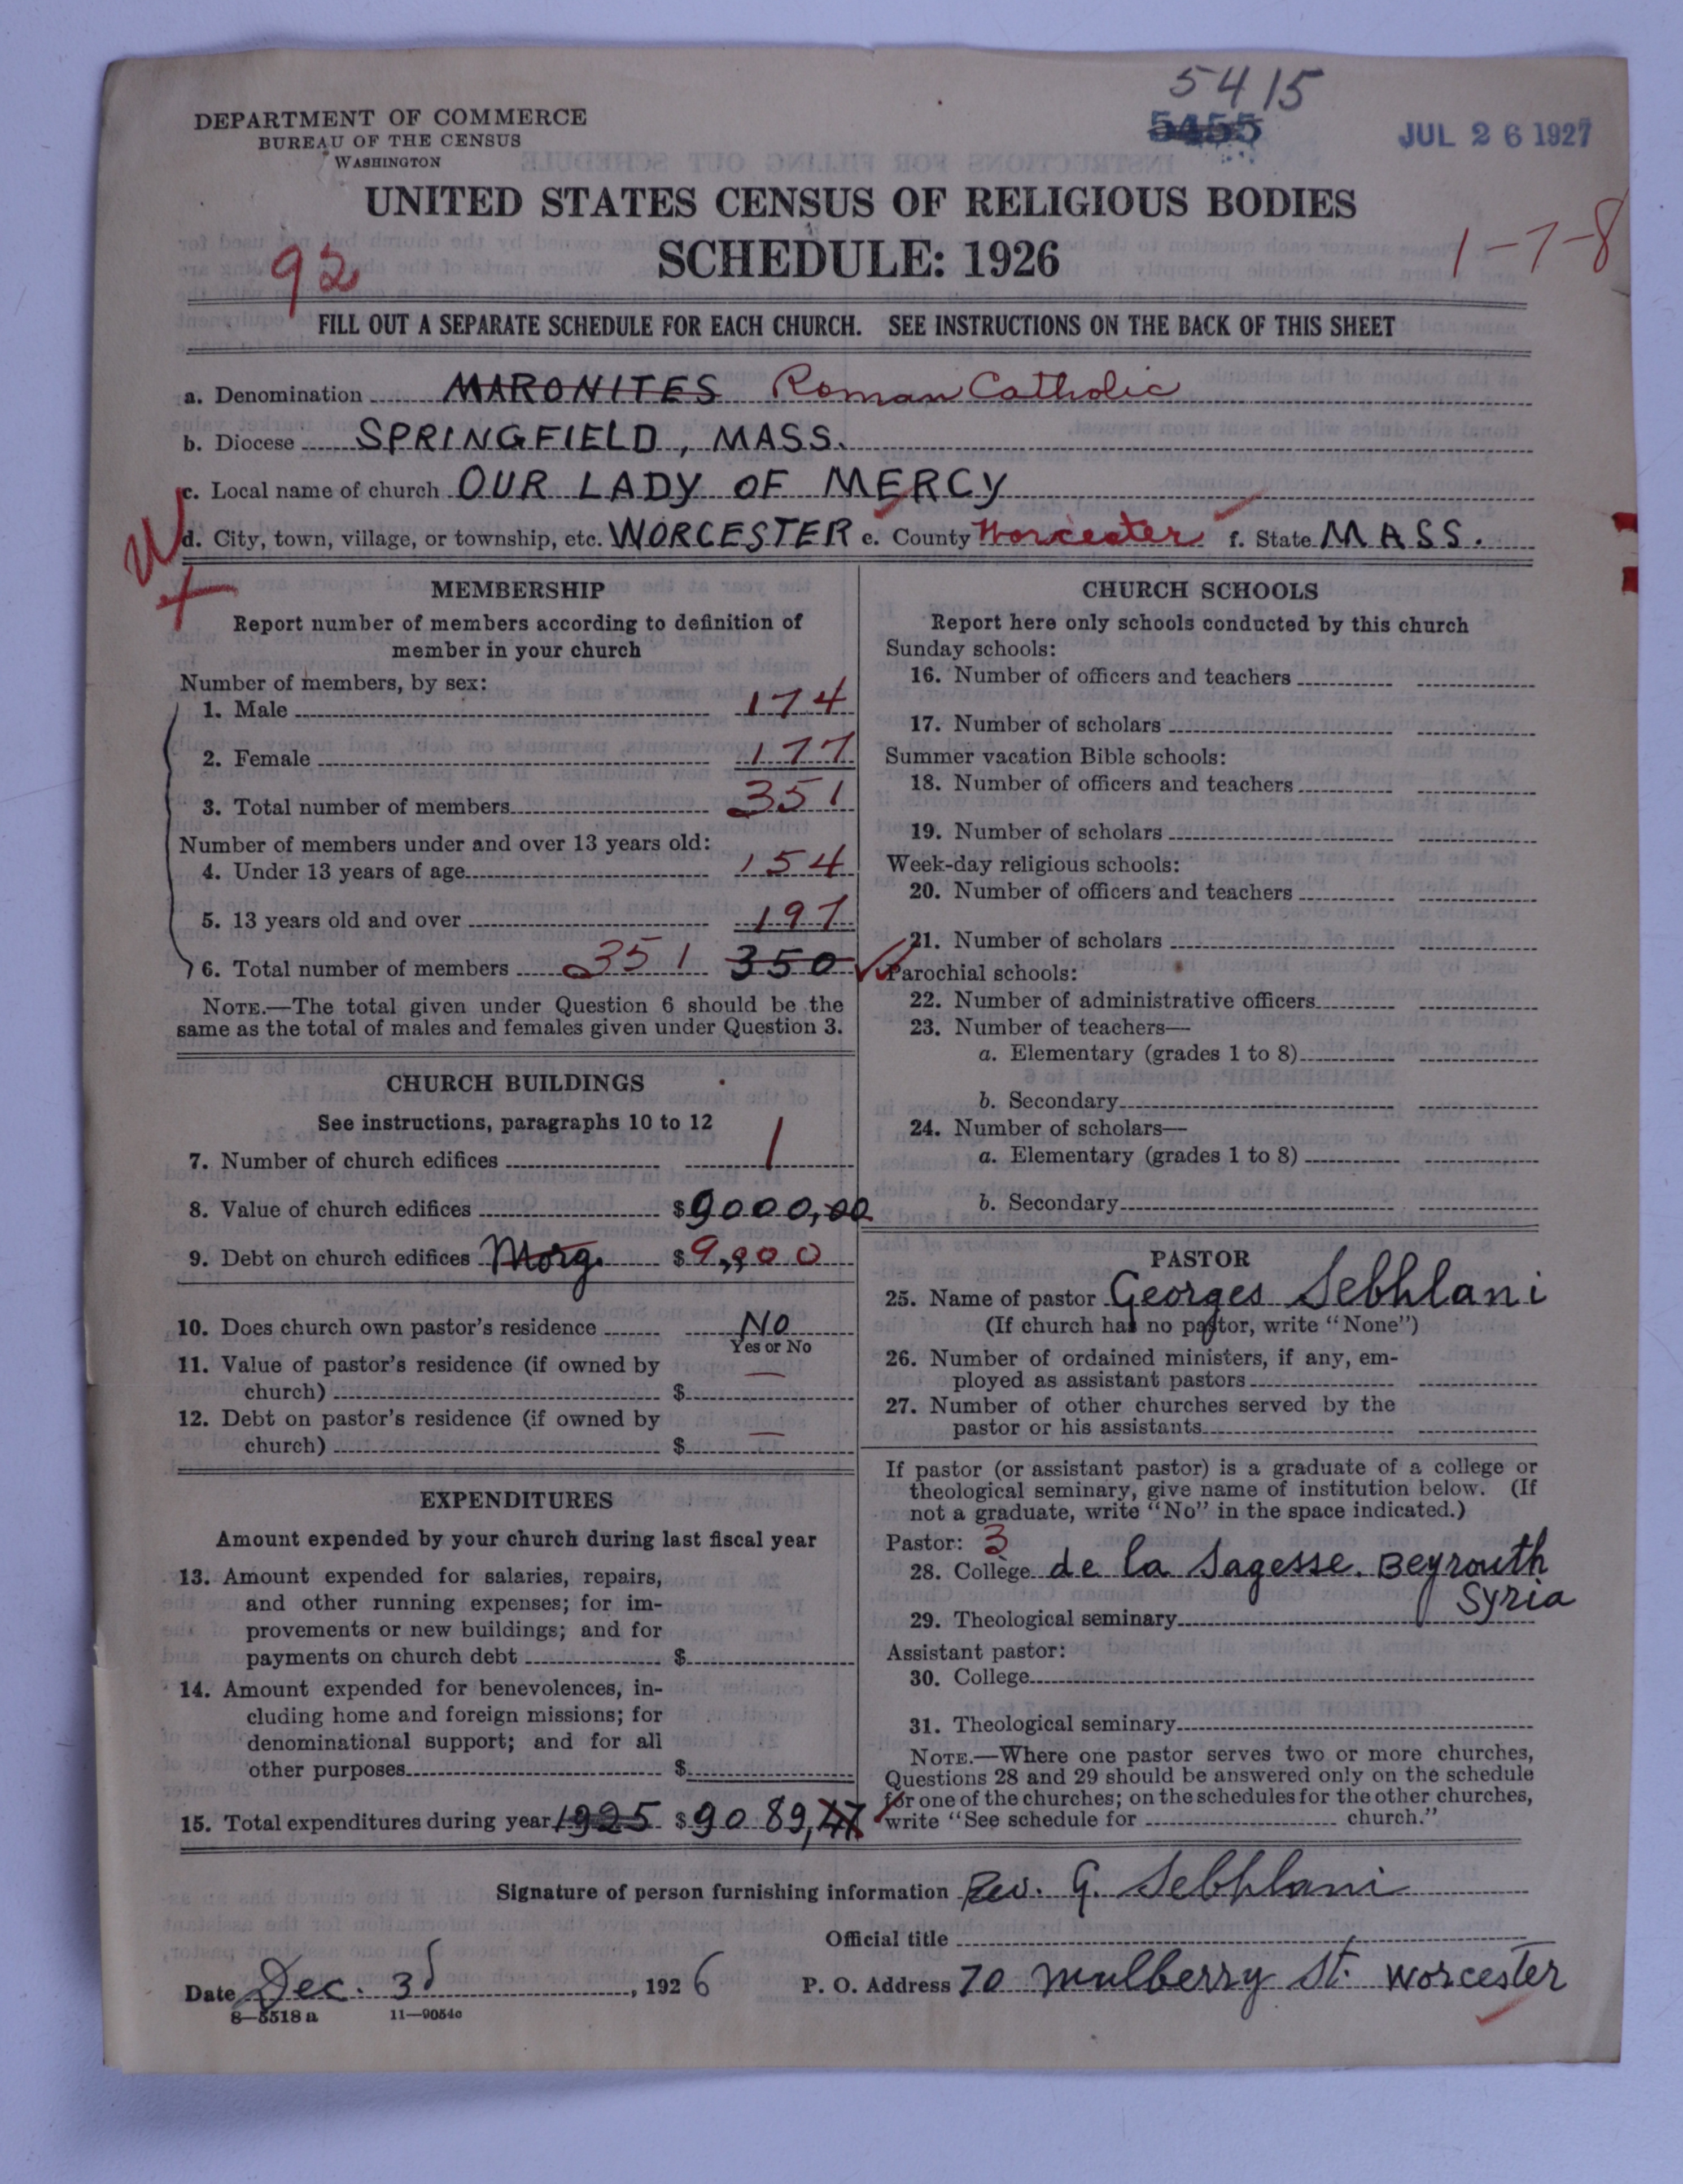 5415
5455
JUL 26 1927
DEPARTMENT OF COMMERCE
BUREAU OF THE CENSUS
WASHINGTON
UNITED STATES CENSUS OF RELIGIOUS BODIES
SCHEDULE: 1926
92
1-7-8
FILL OUT A SEPARATE SCHEDULE FOR EACH CHURCH. SEE INSTRUCTIONS ON THE BACK OF THIS SHEET
a. Denomination MARONITES Roman Catholic
b. Diocese SPRINGFIELD, MASS.
c. Local name of church OUR LADY OF MERCY
d. City, town, village, or township, etc. WORCESTER e. County Worcester f. State MASS.
MEMBERSHIP
Report number of members according to definition of
member in your church
Number of members, by sex:
1. Male 174
2. Female 177
3. Total number of members 351
Number of members under and over 13 years old:
4. Under 13 years of age 154
5. 13 years old and over 197
6. Total number of members 351 350
NOTE.—The total given under Question 6 should be the
same as the total of males and females given under Question 3.
CHURCH BUILDINGS
See instructions, paragraphs 10 to 12
7. Number of church edifices 1
8. Value of church edifices $9000,00
9. Debt on church edifices Morg. $9,900
10. Does church own pastor's residence No
Yes or No
11. Value of pastor's residence (if owned by
church) $ —
12. Debt on pastor's residence (if owned by
church) $ —
EXPENDITURES
Amount expended by your church during last fiscal year
13. Amount expended for salaries, repairs,
and other running expenses; for im-
provements or new buildings; and for
payments on church debt $
14. Amount expended for benevolences, in-
cluding home and foreign missions; for
denominational support; and for all
other purposes $
15. Total expenditures during year 1925 $9089,47
CHURCH SCHOOLS
Report here only schools conducted by this church
Sunday schools:
16. Number of officers and teachers
17. Number of scholars
Summer vacation Bible schools:
18. Number of officers and teachers
19. Number of scholars
Week-day religious schools:
20. Number of officers and teachers
21. Number of scholars
Parochial schools:
22. Number of administrative officers
23. Number of teachers—
a. Elementary (grades 1 to 8)
b. Secondary
24. Number of scholars—
a. Elementary (grades 1 to 8)
b. Secondary
PASTOR
25. Name of pastor Georges Sebhlani
(If church has no pastor, write "None")
26. Number of ordained ministers, if any, em-
ployed as assistant pastors
27. Number of other churches served by the
pastor or his assistants
If pastor (or assistant pastor) is a graduate of a college or
theological seminary, give name of institution below. (If
not a graduate, write "No" in the space indicated.)
Pastor: 3
28. College de la Sagesse. Beyrouth
Syria
29. Theological seminary
Assistant pastor:
30. College
31. Theological seminary
NOTE.—Where one pastor serves two or more churches,
Questions 28 and 29 should be answered only on the schedule
for one of the churches; on the schedules for the other churches,
write "See schedule for church."
Signature of person furnishing information Rev. G. Sebhlani
Official title
Date Dec. 3d, 1926 P. O. Address 70 Mulberry St. Worcester
8—5518 a 11—9054c